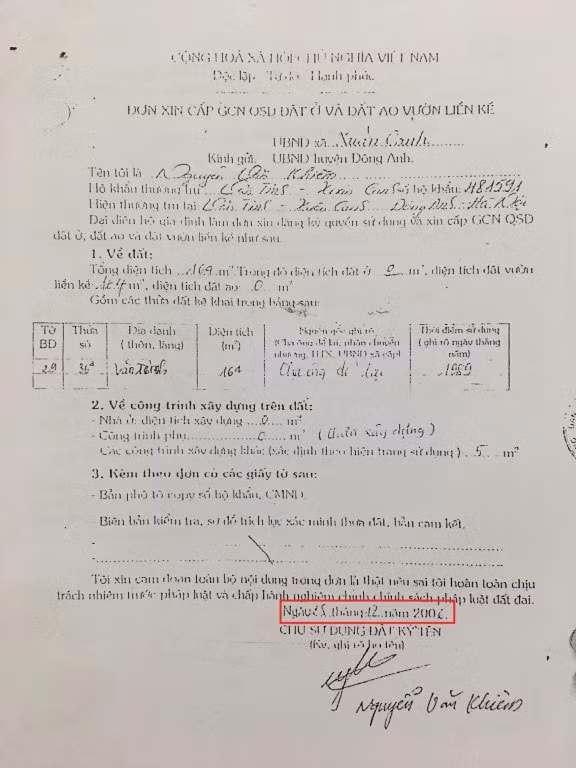 CỘNG HOÀ XÃ HỘI CHỦ NGHĨA VIỆT NAM
Độc lập - Tự do - Hạnh phúc
ĐƠN XIN CẤP GCN QSD ĐẤT Ở VÀ ĐẤT AO VƯỜN LIỀN KỀ
UBND xã Xuân Canh
Kính gửi: UBND huyện Đông Anh.
Tên tôi là Nguyễn Văn Khiêm
Hộ khẩu thường trú Văn Tinh - Xuân Canh số hộ khẩu: 481591
Hiện thường trú tại: Văn Tinh - Xuân Canh - Đông Anh - Hà Nội
Đại diện hộ gia đình làm đơn xin đăng ký quyền sử dụng và xin cấp GCN QSD
đất ở, đất ao và đất vườn liền kề như sau.
1. Về đất:
Tổng diện tích 164 m². Trong đó diện tích đất ở 0 m², diện tích đất vườn
liền kề 164 m², diện tích đất ao: 0 m²
Gồm các thửa đất kê khai trong bảng sau:
Tờ BĐ | Thửa số | Địa danh ( thôn, làng) | Diện tích (m²) | Nguồn gốc ghi rõ (Cha ông để lại, nhận chuyển nhượng, HTX, UBND xã cấp) | Thời điểm sử dụng ( ghi rõ ngày tháng năm)
29 | 36ª | Văn Tinh | 164 | Cha ông để lại | 1989
2. Về công trình xây dựng trên đất:
- Nhà ở: diện tích xây dựng 0 m²
- Công trình phụ 0 m² ( chưa xây dựng )
- Các công trình xây dựng khác (xác định theo hiện trạng sử dụng ) 5 m²
3. Kèm theo đơn có các giấy tờ sau:
- Bản phô tô copy sổ hộ khẩu, CMND.
- Biên bản kiểm tra, sơ đồ trích lục xác minh thửa đất, bản cam kết.
Tôi xin cam đoan toàn bộ nội dung trong đơn là thật nếu sai tôi hoàn toàn chịu
trách nhiệm trước pháp luật và chấp hành nghiêm chỉnh chính sách pháp luật đất đai.
Ngày 25 tháng 12 năm 200
CHỦ SỬ DỤNG ĐẤT KÝ TÊN
(Ký, ghi rõ họ tên)
Nguyễn Văn Khiêm